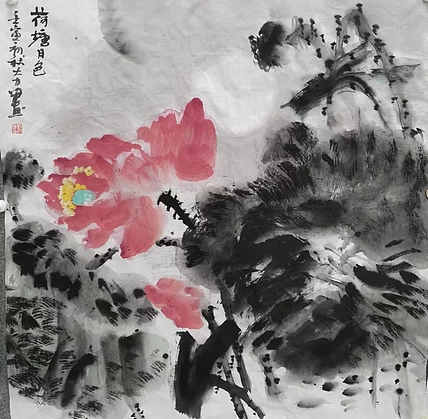 荷塘月色
壬寅初秋大力画